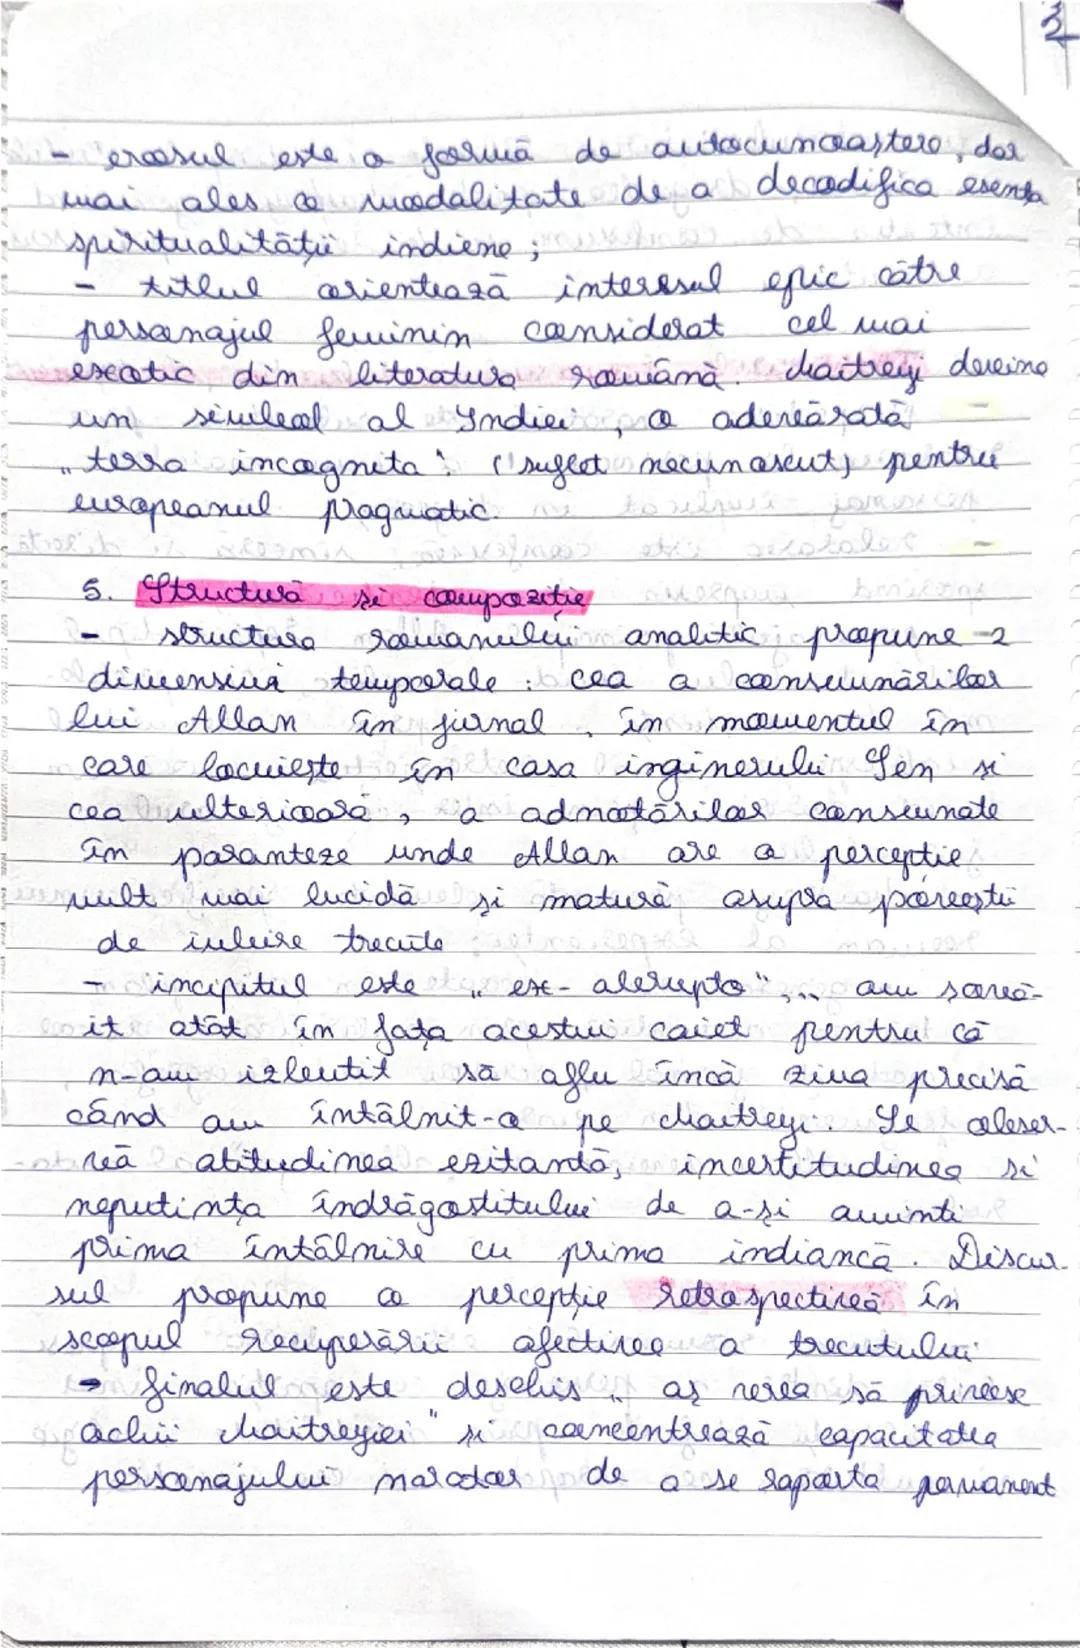 3
- erosul este o formă de autocunoaștere, dar
mai ales o modalitate de a decodifica esența
spiritualității indiene;
- titlul orientează interesul epic către
personajul feminin considerat cel mai
exotic din literatura română. Maitreyi devine
un simbol al Indiei, o adevărată
„terra incognita". (suflet necunoscut) pentru
europeanul pragmatic.
5. Structură și compoziție
- structura romanului analitic propune 2
dimensiuni temporale: cea a consemnărilor
lui Allan în jurnal, în momentul în
care locuiește în casa inginerului Sen și
cea ulterioară, a adnotărilor consemnate
în paranteze unde Allan are o percepție
mult mai lucidă și matură asupra poveștii
de iubire trecute
- incipitul este „ex-abrupto", „am șovă-
it atât în fața acestui caiet pentru că
n-am izbutit să aflu încă ziua precisă
când am întâlnit-o pe Maitreyi. Se obser-
vă atitudinea ezitantă, incertitudinea și
neputința îndrăgostitului de a-și aminti
prima întâlnire cu prima indiancă. Discur-
sul propune o percepție retrospectivă în
scopul recuperării afective a trecutului
- finalul este deschis „aș vrea să privesc
ochii Maitreyiei" și concentrează capacitatea
personajului narator de a se raporta permanent